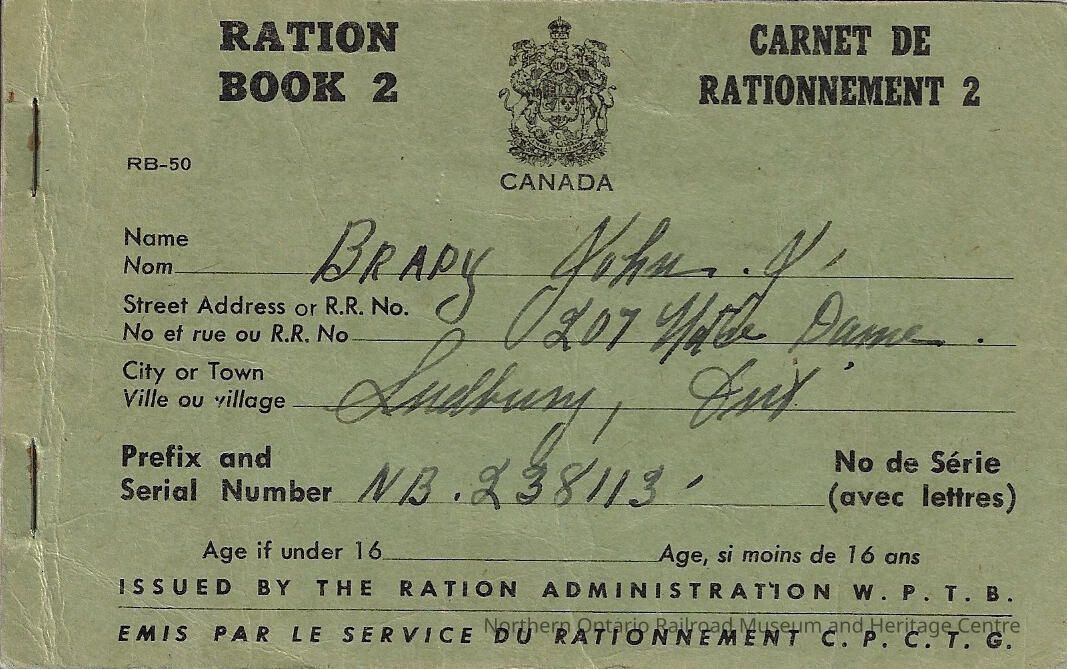 RATION
BOOK 2
CARNET DE
RATIONNEMENT 2
RB-50
CANADA
Name BRADY John. J.
Nom
Street Address or R.R. No. 207 Notre Dame.
No et rue ou R.R. No
City or Town Sudbury, Ont.
Ville ou village
Prefix and
Serial Number NB. 238113
No de Série
(avec lettres)
Age if under 16 Age, si moins de 16 ans
ISSUED BY THE RATION ADMINISTRATION W. P. T. B.
EMIS PAR LE SERVICE DU RATIONNEMENT C. P. C. T. G.
Northern Ontario Railroad Museum and Heritage Centre